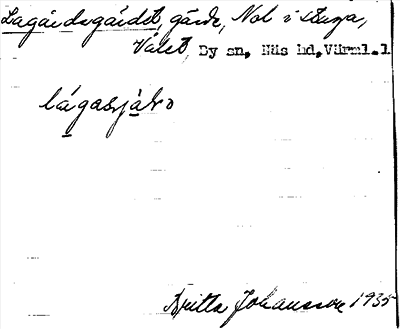 Lagårdsgärdet, gärde, Nol i stuga,
Vålet, By sn, Näs hd, Värml. l
lágasjàḷə
Britta Johansson 1935